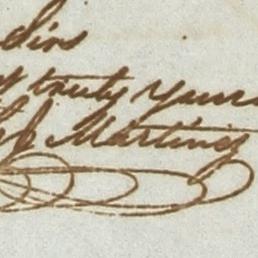 Sirs
truly yours
Martinez